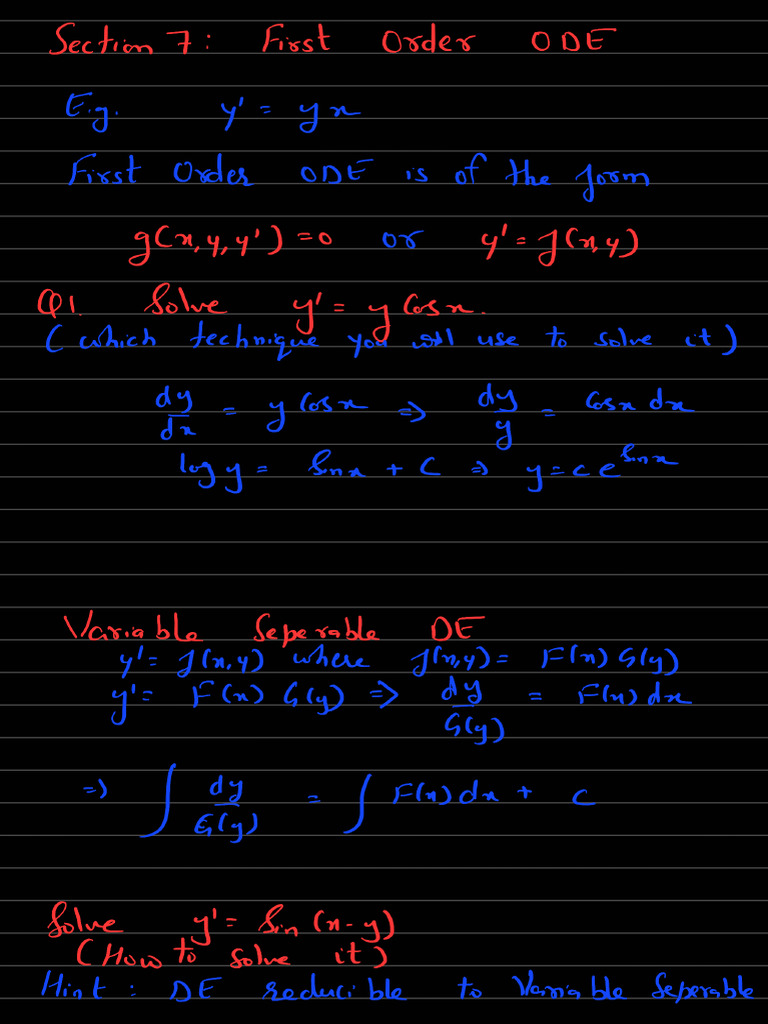 Section 7: First Order ODE
E.g. y' = yx
First Order ODE is of the form
g(x,y,y')=0 or y'=f(x,y)
Q1. Solve y' = y Cosx.
(which technique you will use to solve it)
dy/dx = y cosx => dy/y = Cosx dx
log y = Sinx + C => y = c e^Sinx
Variable Seperable DE
y' = f(x,y) where f(x,y) = F(x) G(y)
y' = F(x) G(y) => dy/G(y) = F(x) dx
=> ∫ dy/G(y) = ∫ F(x) dx + C
Solve y' = Sin (x-y)
(How to solve it)
Hint : DE reducible to Variable Seperable